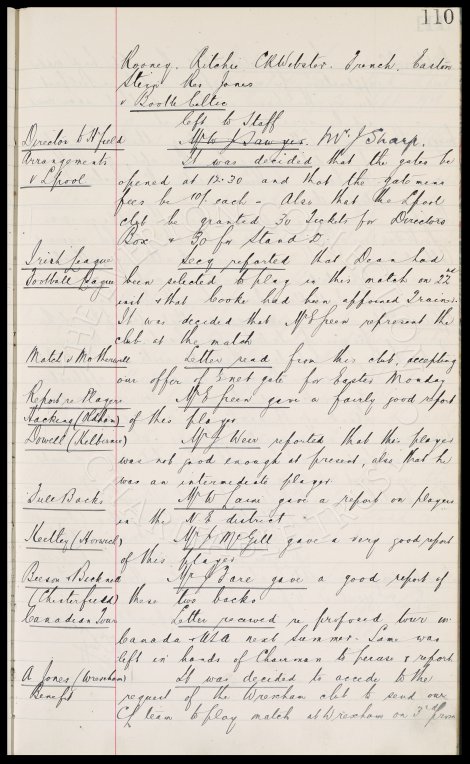 110
Rooney. Ritchie C R Webster. French. Easton
Steip Res Jones
v Bootle Celtic
left to Staff
Director to H'field Mr W J Sawyer. Mr J Sharp.
Arrangements It was decided that the gates be
v L'pool opened at 12.30 and that the gatemens
fees be 10/- each - Also that the L'pool
club be granted 30 Tickets for Directors
Box & 30 for Stand D.
Irish League Secy reported that Dean had
Football League been selected to play in this match on 22nd
inst & that Cooke had been appointed Trainer.
It was decided that Mr Green represent the
club at the match
Match v Motherwell Letter read from this club, accepting
our offer of ½ net gate for Easter Monday
Report re Players Mr E Green gave a fairly good report
Hacking (Oldham) of this player
Dowell (Kelburne) Mr J Weir reported that this player
was not good enough at present, also that he
was an intermediate player
Full Backs Mr W Caine gave a report on players
in the N.E. district
Kelley (Horwich) Mr F McGill gave a very good report
of this player
Beeson & Bicknell Mr J Fare gave a good report of
(Chesterfield) these two backs
Canadian Tour Letter received re proposed tour in
Canada & USA next Summer - Same was
left in hands of Chairman to peruse & report
A Jones (Wrexham) It was decided to accede to the
Benefit request of the Wrexham club to send our
CL team to play match at Wrexham on 3rd prox